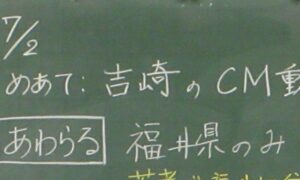 7/2
めあて：吉崎のCM動
あわらる 福井県のみ